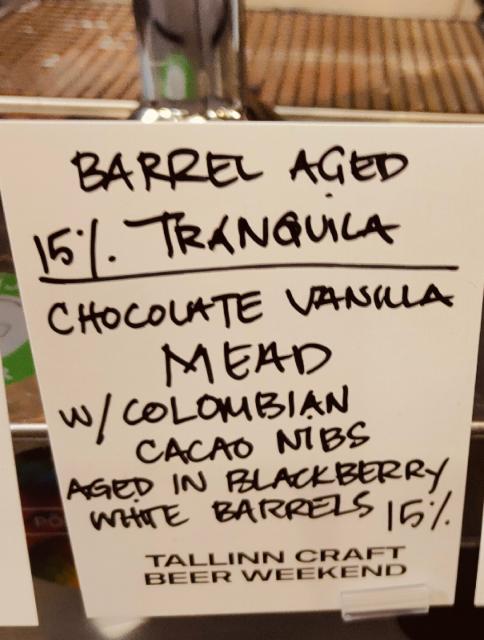 BARREL AGED
15%. TRANQUILA
CHOCOLATE VANILLA
MEAD
W/COLOMBIAN
CACAO NIBS
AGED IN BLACKBERRY
WHITE BARRELS 15%
TALLINN CRAFT
BEER WEEKEND